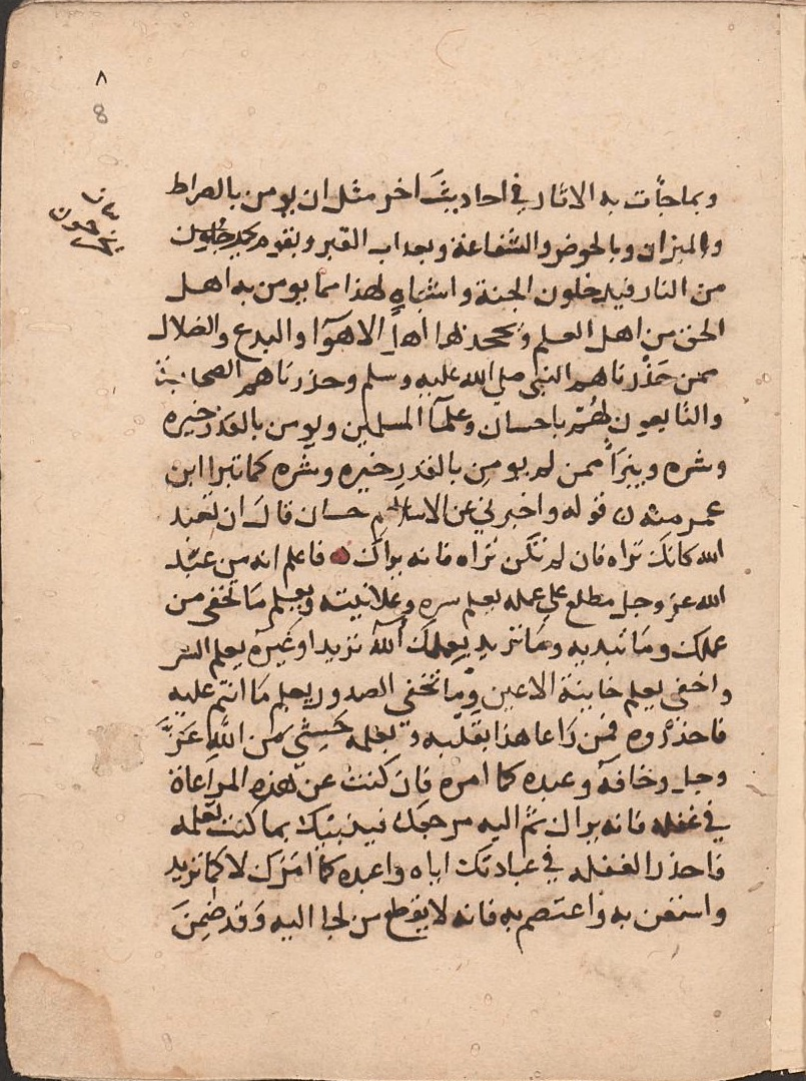 ٨
8
وبما جأت به الاثار في احاديث اخر مثل ان يومن بالصراط
والميزان وبالحوض والشفاعة وبعداب القبر وبقوم يخرجون
من النار فيدخلون الجنة واشباه لهذا مما يومن به اهل
الحق من اهل العلم ويجحد بها اهل الاهوآ والبدع والضلال
ممن حذرناهم النبى صلى الله عليه وسلم وحذرناهم الصحابة
والتابعون لهم باحسان وعلمآ المسلمين ويومن بالقدر خيره
وشره ويبرأ ممن لم يومن بالقدر خيره وشره كما تبرا ابن
عمر منه قوله واخبرني عن الاحسان قال ان تعبد
الله كانك تراه فان لم تكن تراه فانه يراك فاعلم انه من عبد
الله عز وجل مطلع على عمله يعلم سره وعلانيته ويعلم ما تخفى من
عملك وما تبديه وما تريد بعملك آلله تريد او غيره يعلم السر
واخفى يعلم خاينة الاعين وما تخفي الصدور يعلم ما انتم عليه
فاحذروه فمن راعا هذا بقلبه وبعلمه خشي من الله عز
وجل وخافه وعبده كما امره فان كنت عن هذه المراعاة
في غفله فانه يراك ثم اليه مرجعك فينبئك بما كنت تعمله
فاحذر الغفله في عبادتك اياه واعبده كما امرك لا كما تريد
واستعن به واعتصم به فانه لا يقطع من لجا اليه وقد ضمن